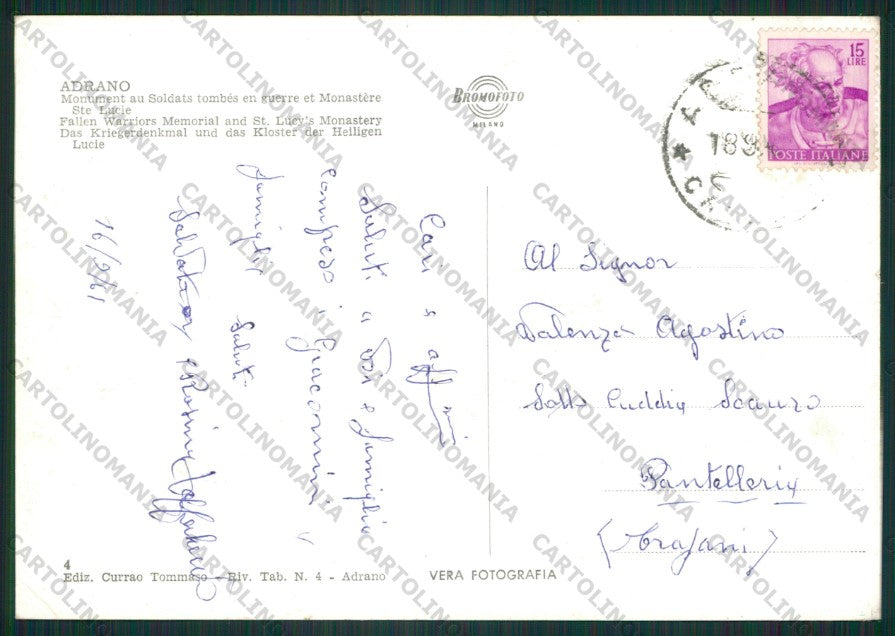 ADRANO
Monument au Soldats tombés en guerre et Monastère
Ste Lucie
Fallen Warriors Memorial and St. Lucy's Monastery
Das Kriegerdenkmal und das Kloster der Heiligen
Lucie
BROMOFOTO
MILANO
15
LIRE
POSTE ITALIANE
Cari e aff.mi
Saluti a Voi e famiglia
compreso i Giacomini
famiglia Saluti
Salvatore e Rosina
16/9/61
Al Signor
Valenza Agostino
Cuddia Scauro
Pantelleria
(Trapani)
4
Ediz. Currao Tommaso - Riv. Tab. N. 4 - Adrano
VERA FOTOGRAFIA
CARTOLINOMANIA